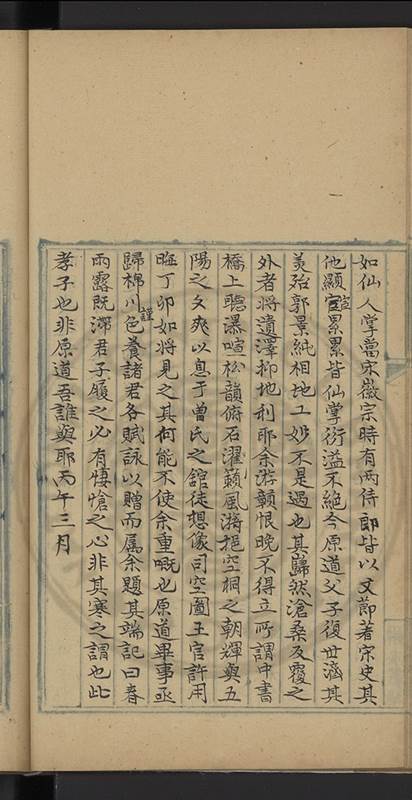 如仙人掌當宋徽宗時有两侍郎皆以文節著宋史其
他顯宦累累皆仙掌衍溢不絕今原道父子復世濟其
美殆郭景純相地工妙不是過也其巋然滄桑反覆之
外者將遺澤抑地利耶余游贛恨晚不得立所謂中書
橋上聽瀑喧松韻俯石濯籟風漪挹空桐之朝輝與五
陽之夕爽以息于曾氏之舘徒想像司空圖王官許用
晦丁卯如將見之其何能不使余重嘅也原道畢事亟
歸棉川色養諸君各賦詠以贈而属余題其端記曰春
雨露既濡君子履之必有悽愴之心非其寒之謂也此
孝子也非原道吾誰與耶丙午三月